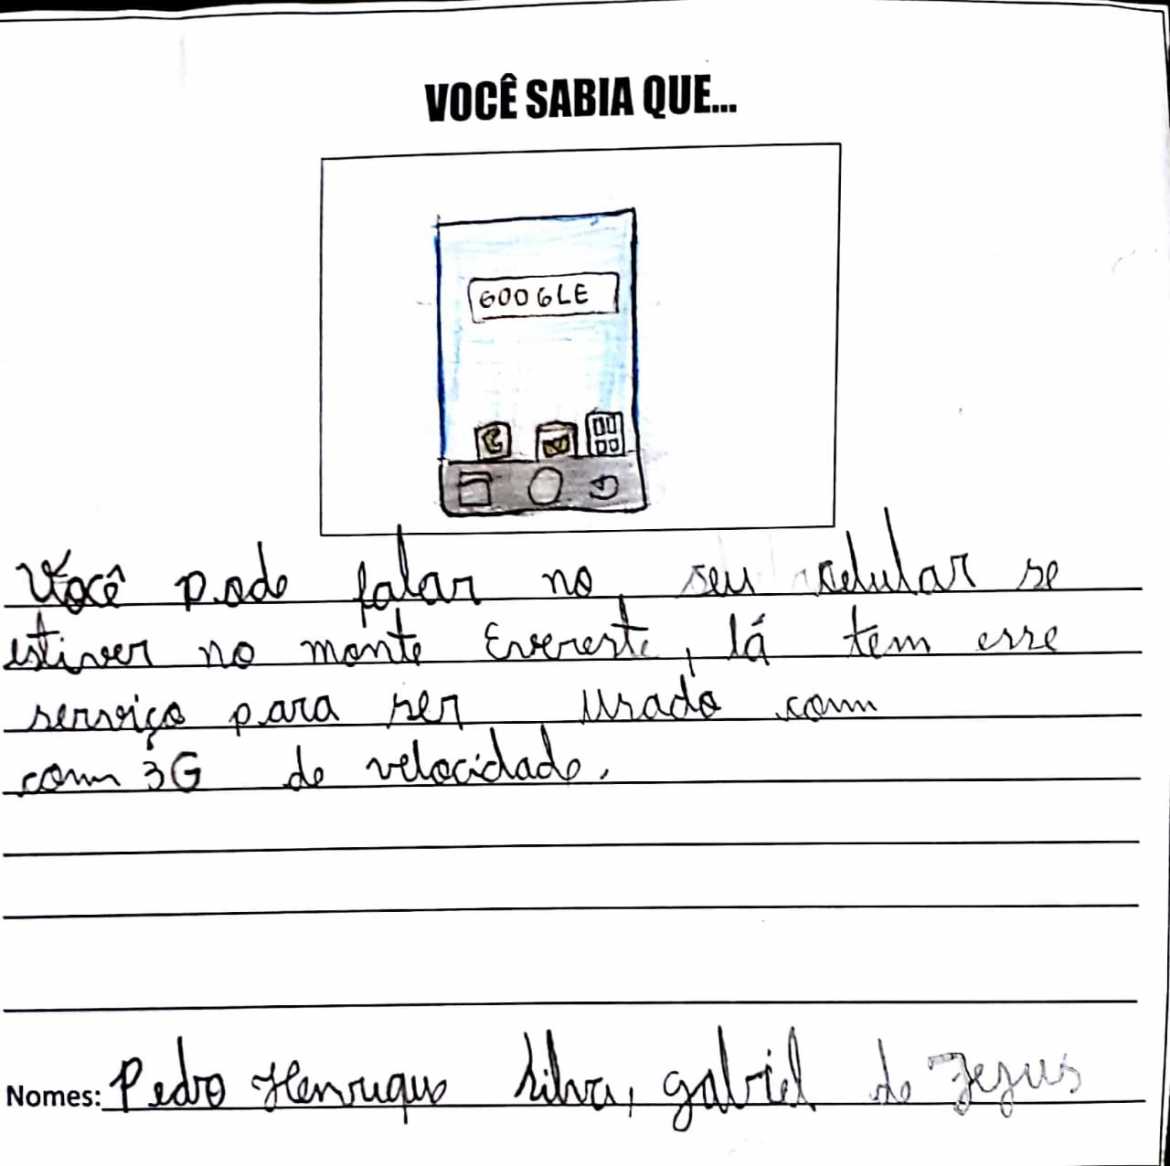 VOCÊ SABIA QUE...
GOOGLE
Você pode falar no seu celular se
estiver no monte Evereste, lá tem esse
serviço para ser usado com
com 3G de velocidade.
Nomes: Pedro Henrique Silva, gabriel de Jesus